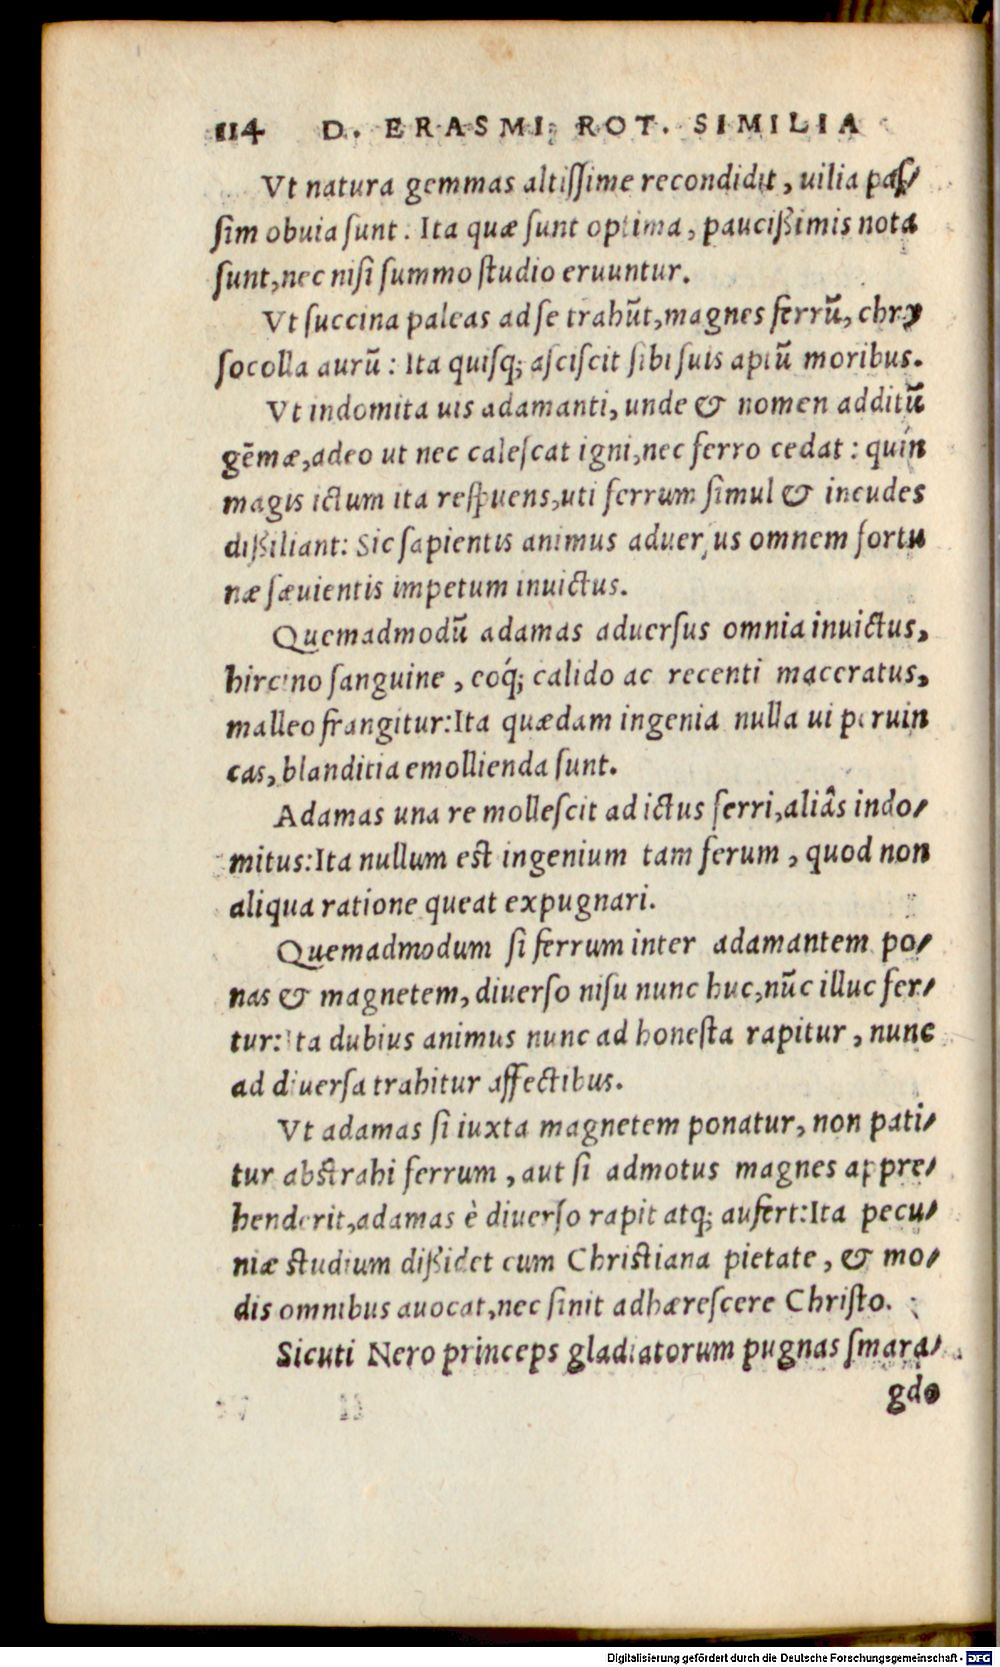 114 D. ERASMI ROT. SIMILIA
Vt natura gemmas altissime recondidit, uilia pas/
sim obuia sunt. Ita quæ sunt optima, paucißimis nota
sunt, nec nisi summo studio eruuntur.
Vt succina paleas ad se trahūt, magnes ferrū, chry
socolla aurū: Ita quisq; asciscit sibi suis aptū moribus.
Vt indomita uis adamanti, unde & nomen additū
gēmæ, adeo ut nec calescat igni, nec ferro cedat: quin
magis ictum ita respuens, uti ferrum simul & incudes
dißiliant: Sic sapientis animus aduersus omnem fortu
næ sæuientis impetum inuictus.
Quemadmodū adamas aduersus omnia inuictus,
hircino sanguine, eoq́; calido ac recenti maceratus,
malleo frangitur: Ita quædam ingenia nulla ui peruin
cas, blanditia emollienda sunt.
Adamas una re mollescit ad ictus ferri, aliâs indo/
mitus: Ita nullum est ingenium tam ferum, quod non
aliqua ratione queat expugnari.
Quemadmodum si ferrum inter adamantem po/
nas & magnetem, diuerso nisu nunc huc, nūc illuc fer/
tur: Ita dubius animus nunc ad honesta rapitur, nunc
ad diuersa trahitur affectibus.
Vt adamas si iuxta magnetem ponatur, non pati/
tur abstrahi ferrum, aut si admotus magnes appre/
henderit, adamas è diuerso rapit atq; aufert: Ita pecu/
niæ studium dißidet cum Christiana pietate, & mo/
dis omnibus auocat, nec sinit adhærescere Christo.
Sicuti Nero princeps gladiatorum pugnas smara/
gdo
Digitalisierung gefördert durch die Deutsche Forschungsgemeinschaft - DFG